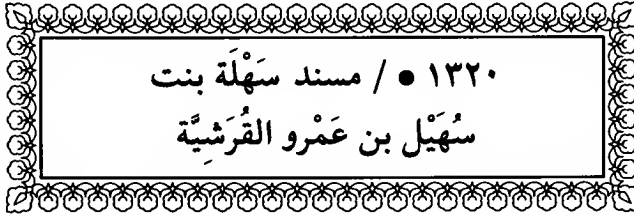 ١٣٢٠ ● / مسند سَهْلَة بنت
سُهَيْل بن عَمْرو القُرَشِيَّة